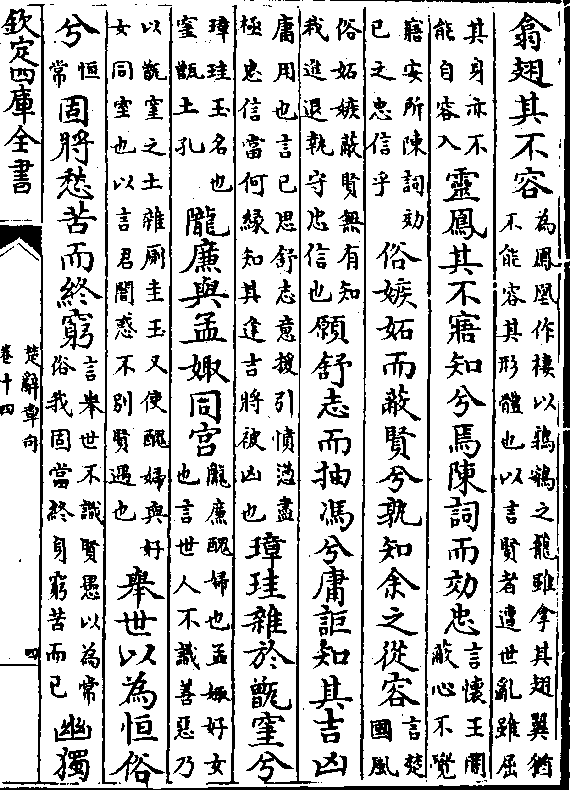 翕翅其不容為鳳凰作棲以鶉鴳之籠雖拿其翅翼猶不能容其形體也以言賢者遭世亂雖屈
其身亦不能自容入靈鳳其不寤知兮焉陳詞而効忠言懷王闇蔽心不覺
寤安所陳詞効已之忠信乎俗嫉妬而蔽賢兮孰知余之從容言楚國風
俗妬嫉蔽賢無有知我進退執守忠信也願舒志而抽馮兮庸詎知其吉凶
庸用也言已思舒志意援引憤懣盡極忠信當何緣知其逢吉將被凶也璋珪雜於甑窐兮
璋珪玉名也窐甑土孔隴廉與孟娵同宮隴廉醜婦也孟娵好女也言世人不識善惡乃
以甑窐之土雜厠圭玉又使醜婦與好女同室也以言君闇惑不別賢遇也舉世以為恒俗
兮恒常固將愁苦而終窮言舉世不識賢愚以為常俗我固當終身窮苦而已幽獨
欽定四庫全書
楚辭章句
卷十四
四